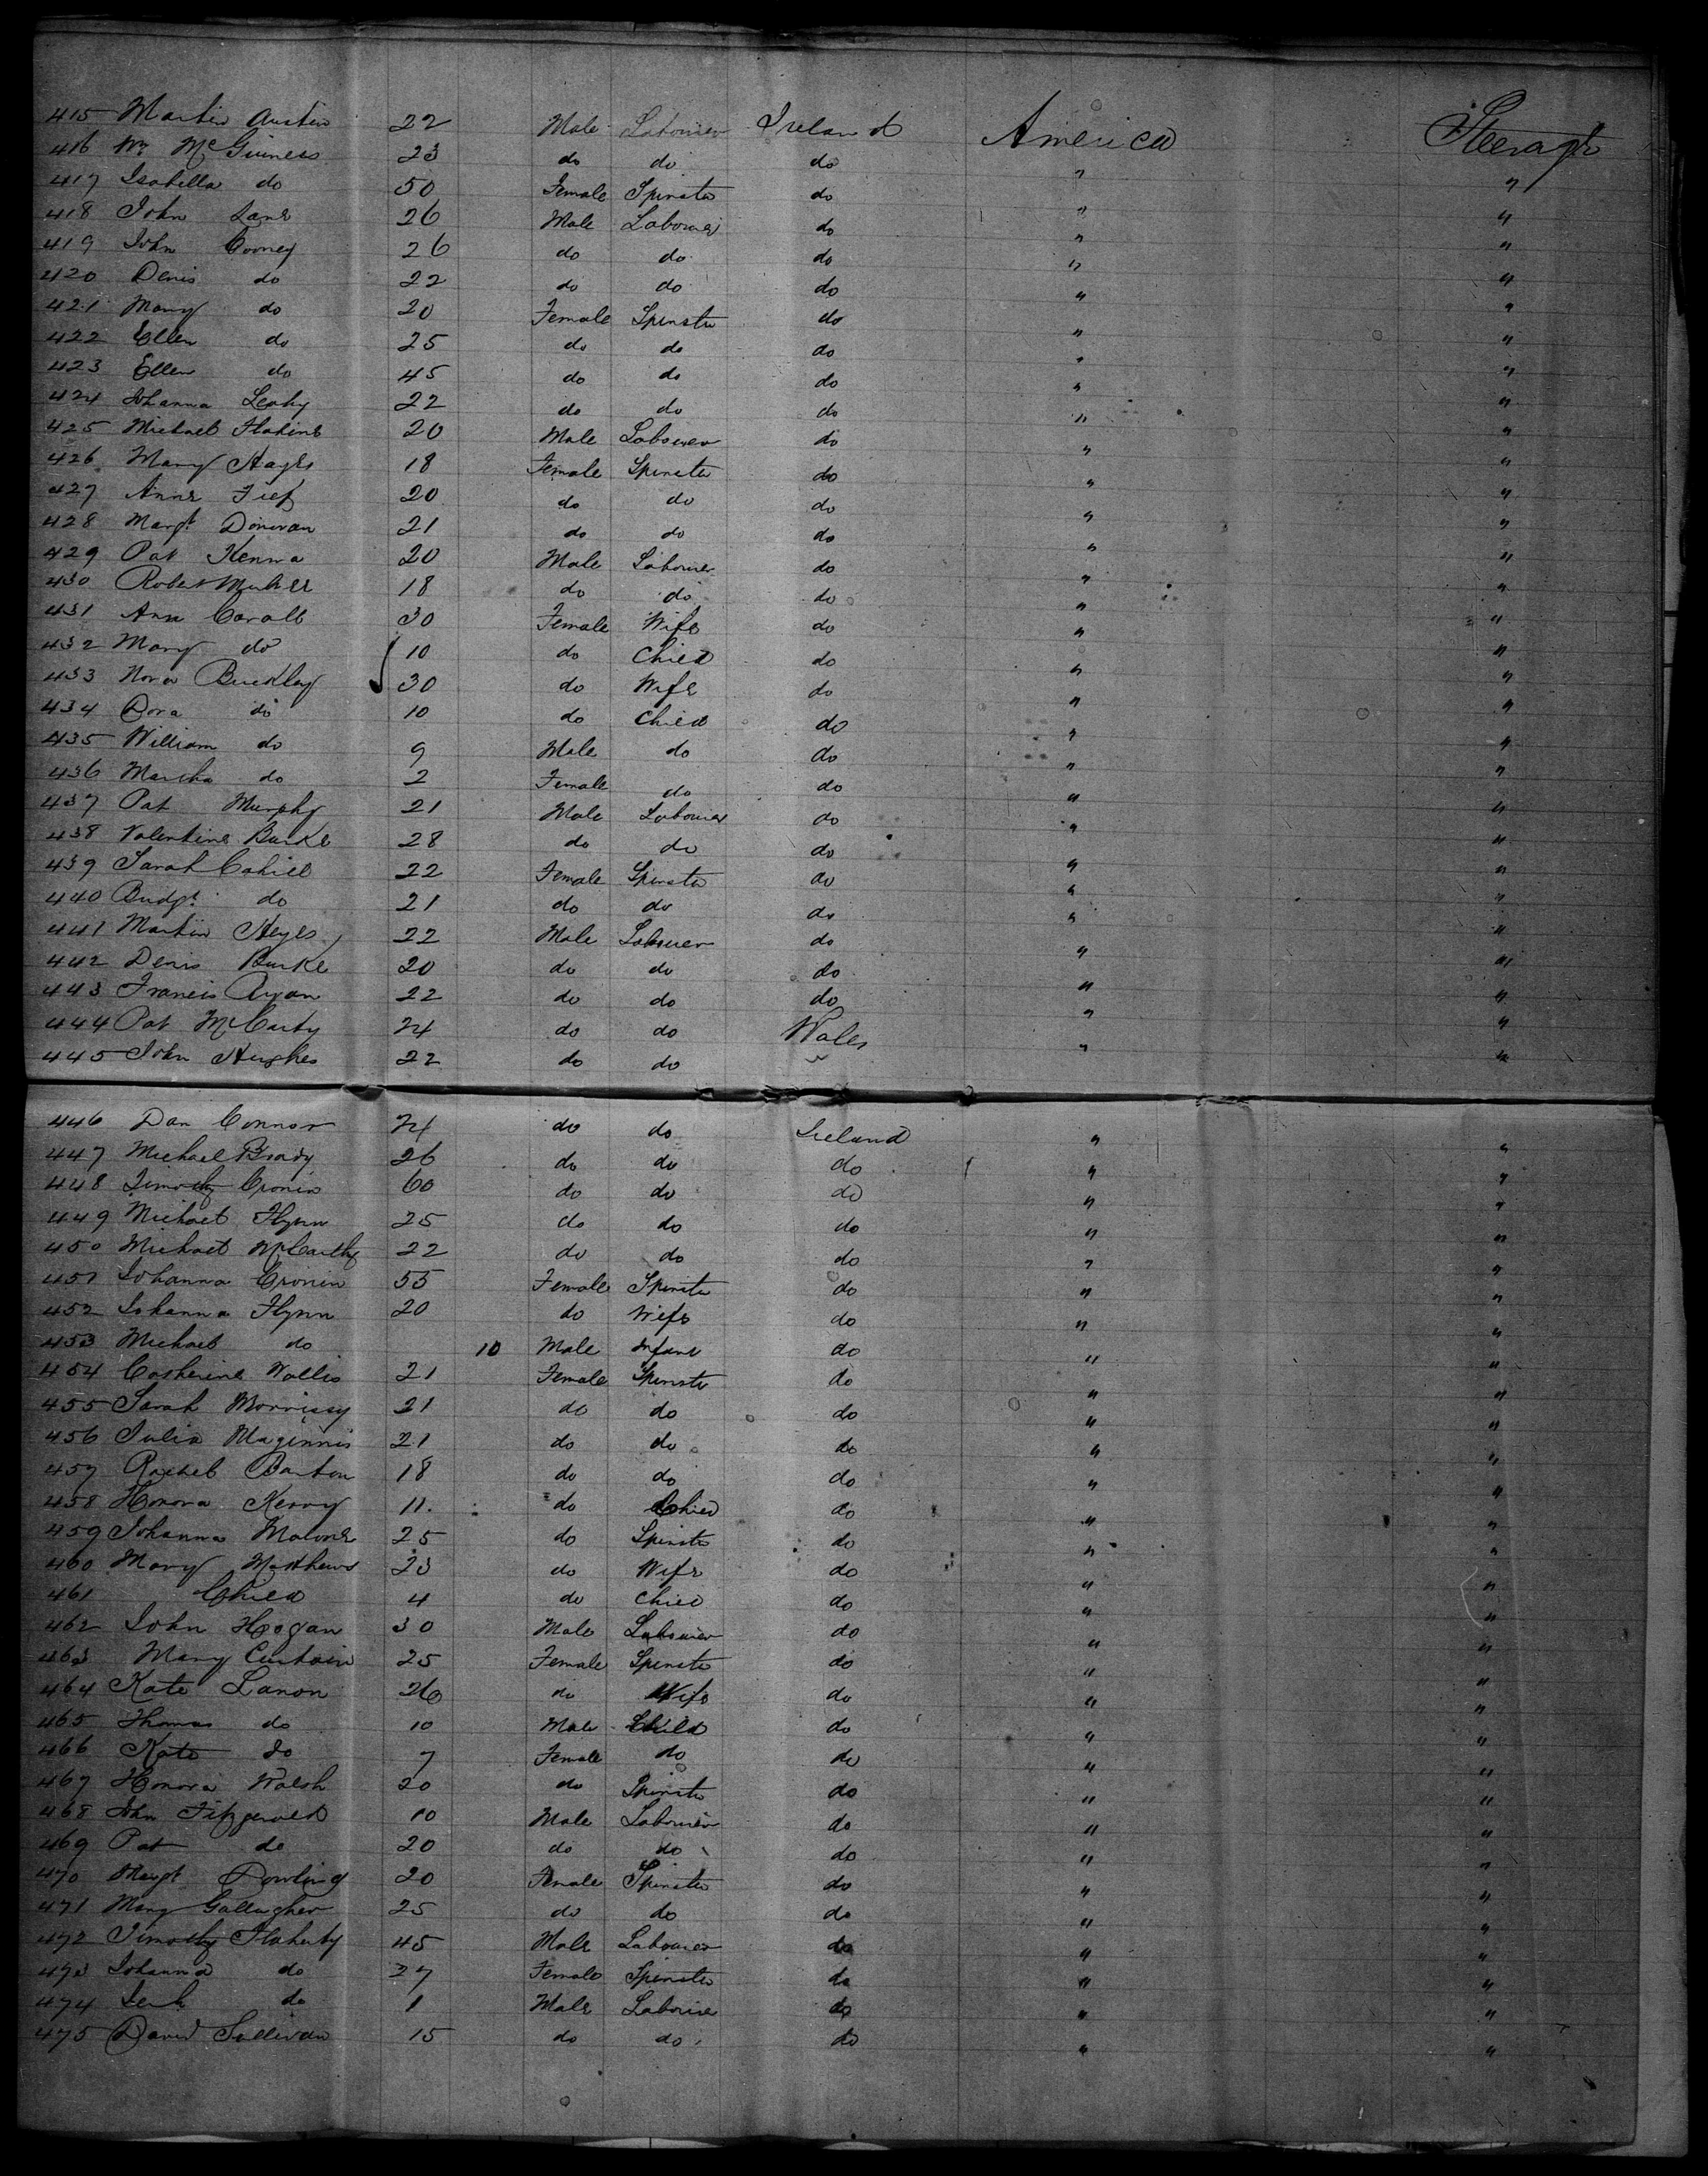 415 Martin Austin 22 Male Labourer Ireland America Steerage
416 Wm McGuiness 23 do do do " "
417 Isabella do 50 Female Spinster do " "
418 John Lane 26 Male Labourer do " "
419 John Cooney 26 do do do " "
420 Denis do 22 do do do " "
421 Mary do 20 Female Spinster do " "
422 Ellen do 25 do do do " "
423 Ellen do 45 do do do " "
424 Johanna Leahy 22 do do do " "
425 Michael 20 Male Labourer do " "
426 Mary Hayes 18 Female Spinster do " "
427 Anne 20 do do do " "
428 Margt Donovan 21 do do do " "
429 Pat Kenna 20 Male Labourer do " "
430 Robert 18 do do do " "
431 Ann Caroll 30 Female Wife do " "
432 Mary do 10 do Child do " "
433 Nora Buckley 30 do Wife do " "
434 Dora do 10 do Child do " "
435 William do 9 Male do do " "
436 Martha do 2 Female do do " "
437 Pat Murphy 21 Male Labourer do " "
438 Valentine Burke 28 do do do " "
439 Sarah Cahill 22 Female Spinster do " "
440 Bridgt do 21 do do do " "
441 Martin Heyes 22 Male Labourer do " "
442 Denis Burke 20 do do do " "
443 Francis Ryan 22 do do do " "
444 Pat McCarty 24 do do Wales " "
445 John Hughes 22 do do "
446 Dan Connor 24 do do Ireland " "
447 Michael Brady 26 do do do " "
448 Timothy Cronin 60 do do do " "
449 Michael Flynn 25 do do do " "
450 Michael McCarthy 22 do do do " "
451 Johanna Cronin 55 Female Spinster do " "
452 Johanna Flynn 20 do Wife do " "
453 Michael do 10 Male Infant do " "
454 Catherine Wallis 21 Female Spinster do " "
455 Sarah Morrissy 21 do do do " "
456 Julia Maginnis 21 do do do " "
457 Rachel Barton 18 do do do " "
458 Honora Kerry 11 do Child do " "
459 Johanna Malone 25 do Spinster do " "
460 Mary Matthews 23 do Wife do " "
461 Child 4 do Child do " "
462 John Hogan 30 Male Labourer do " "
463 Mary Curtain 25 Female Spinster do " "
464 Kate Lanon 26 do Wife do " "
465 Thomas do 10 Male Child do " "
466 Kate do 7 Female do do " "
467 Honora Walsh 20 do Spinster do " "
468 John Fitzgerald 10 Male Labourer do " "
469 Pat do 20 do do do " "
470 Margt Dowling 20 Female Spinster do " "
471 Mary Gallagher 25 do do do " "
472 Timothy Flaherty 45 Male Labourer do " "
473 Johanna do 27 Female Spinster do " "
474 do 1 Male Labourer do " "
475 David Sullivan 15 do do do " "